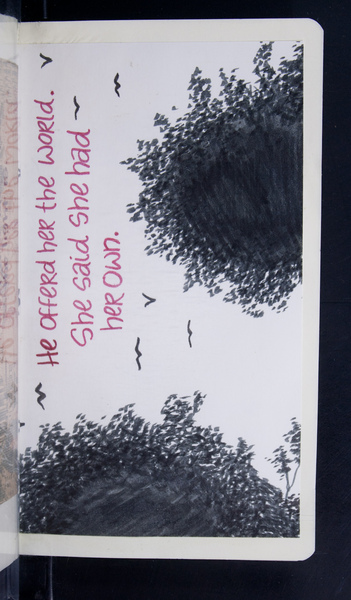 He offerd her the world.
She said she had
her own.